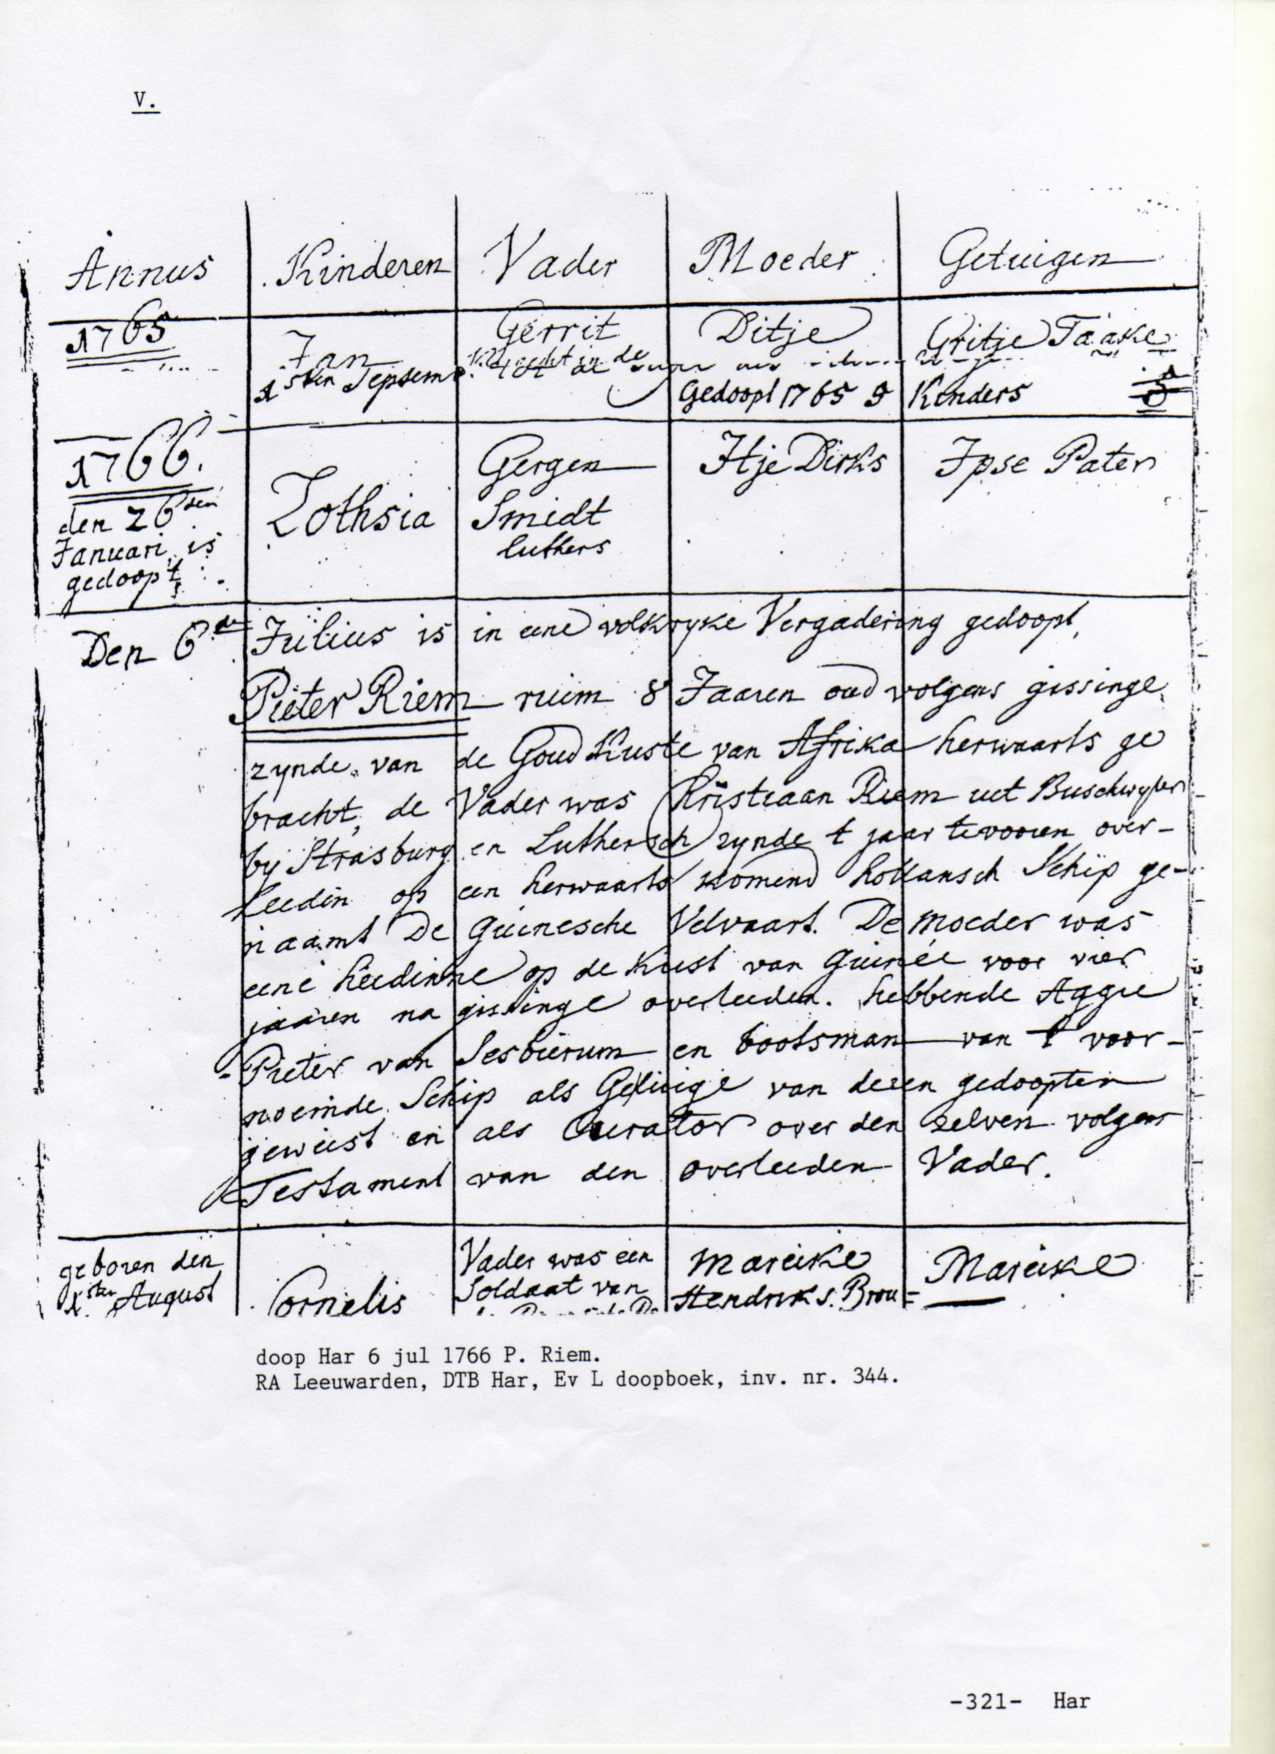 V.
Annus Kinderen Vader Moeder Getuigen
1765 Jan Gerrit Ditje Gritje Taake
1sten Sepsemb.
Gedoopt 1765 9 Kinders
1766. Gergen Itje Dirks Ipse Pater
den 26sten Zothsia Smidt
Januari is luthers
gedoopt
Den 6de Julius is in eene volkryke Vergadering gedoopt,
Pieter Riem ruim 8 Jaaren oud volgens gissinge
zynde van de Goud Kuste van Afrika herwaarts ge
bracht, de Vader was Kristiaan Riem uit Buschwyler
by Strasburg en Luthersch zynde 1 jaar tevooren over-
leedin op een herwaarts komend hollansch Schip ge-
naamt De Guinesche Velvaart. De moeder was
eene heedinne op de Kust van Guinée voor vier
jaaren na gissinge overleeden. hebbende Aggie
Pieter van Sesbierum en bootsman van t voor-
noemde Schip als Getuige van dezen gedoopten
geweest en als Curator over den zelven volgens
Testament van den overleeden Vader.
geboren den Vader was een Mareike Mareike
1sten August Cornelis Soldaat van Hendriks. Brou=
doop Har 6 jul 1766 P. Riem.
RA Leeuwarden, DTB Har, Ev L doopboek, inv. nr. 344.
-321- Har